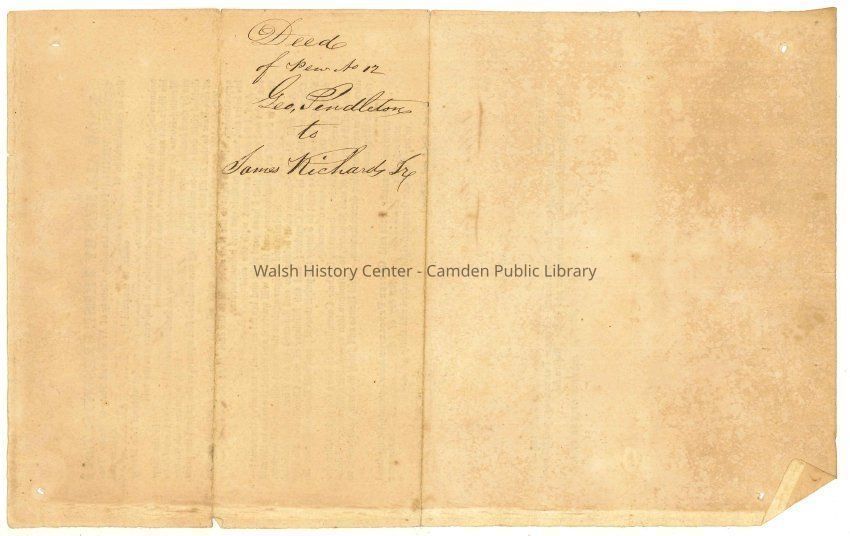 Deed
of Pew No 12
Geo, Pendleton
to
James Richards Jr
Walsh History Center - Camden Public Library